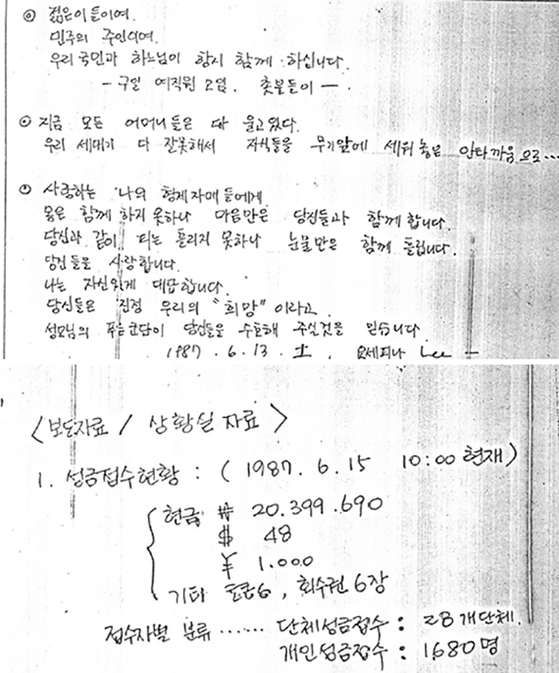 ◎ 젊은이들이여.
민주의 주인이여.
우리 국민과 하느님이 항시 함께 하십니다.
- 구일 여직원 2일. 촛불들이 -
◎ 지금 모든 어머니들은 다 울고있다.
우리 세대가 다 잘못해서 자식들을 무기앞에 세워 놓은 안타까움으로...
◎ 사랑하는 나의 형제자매들에게
몸은 함께 하지 못하나 마음만은 당신들과 함께 합니다.
당신과 같이 피는 흘리지 못하나 눈물만은 함께 흘립니다.
당신들을 사랑합니다.
나는 자신있게 대답합니다.
당신들은 진정 우리의 "희망" 이라고.
성모님의 푸른코단이 당신들을 수호해 주실것을 믿습니다
1987. 6. 13. 土. 요세피나 Lee -
<보도자료 / 상황실 자료>
1. 성금접수현황 : ( 1987. 6. 15 10:00 현재)
현금 ₩ 20.399.690
$ 48
¥ 1.000
기타 토큰6, 회수권 6장
접수자별 분류 ...... 단체성금접수 : 28개단체.
개인성금접수 : 1680명